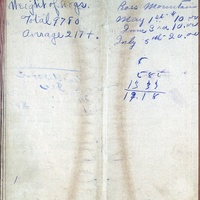 Weight of Hogs.
Total 8780
Average 217+.
Ross Mountain
May 1st $10.00
June 3rd 10.00
July 5th 20.00
5
585
1333
1918